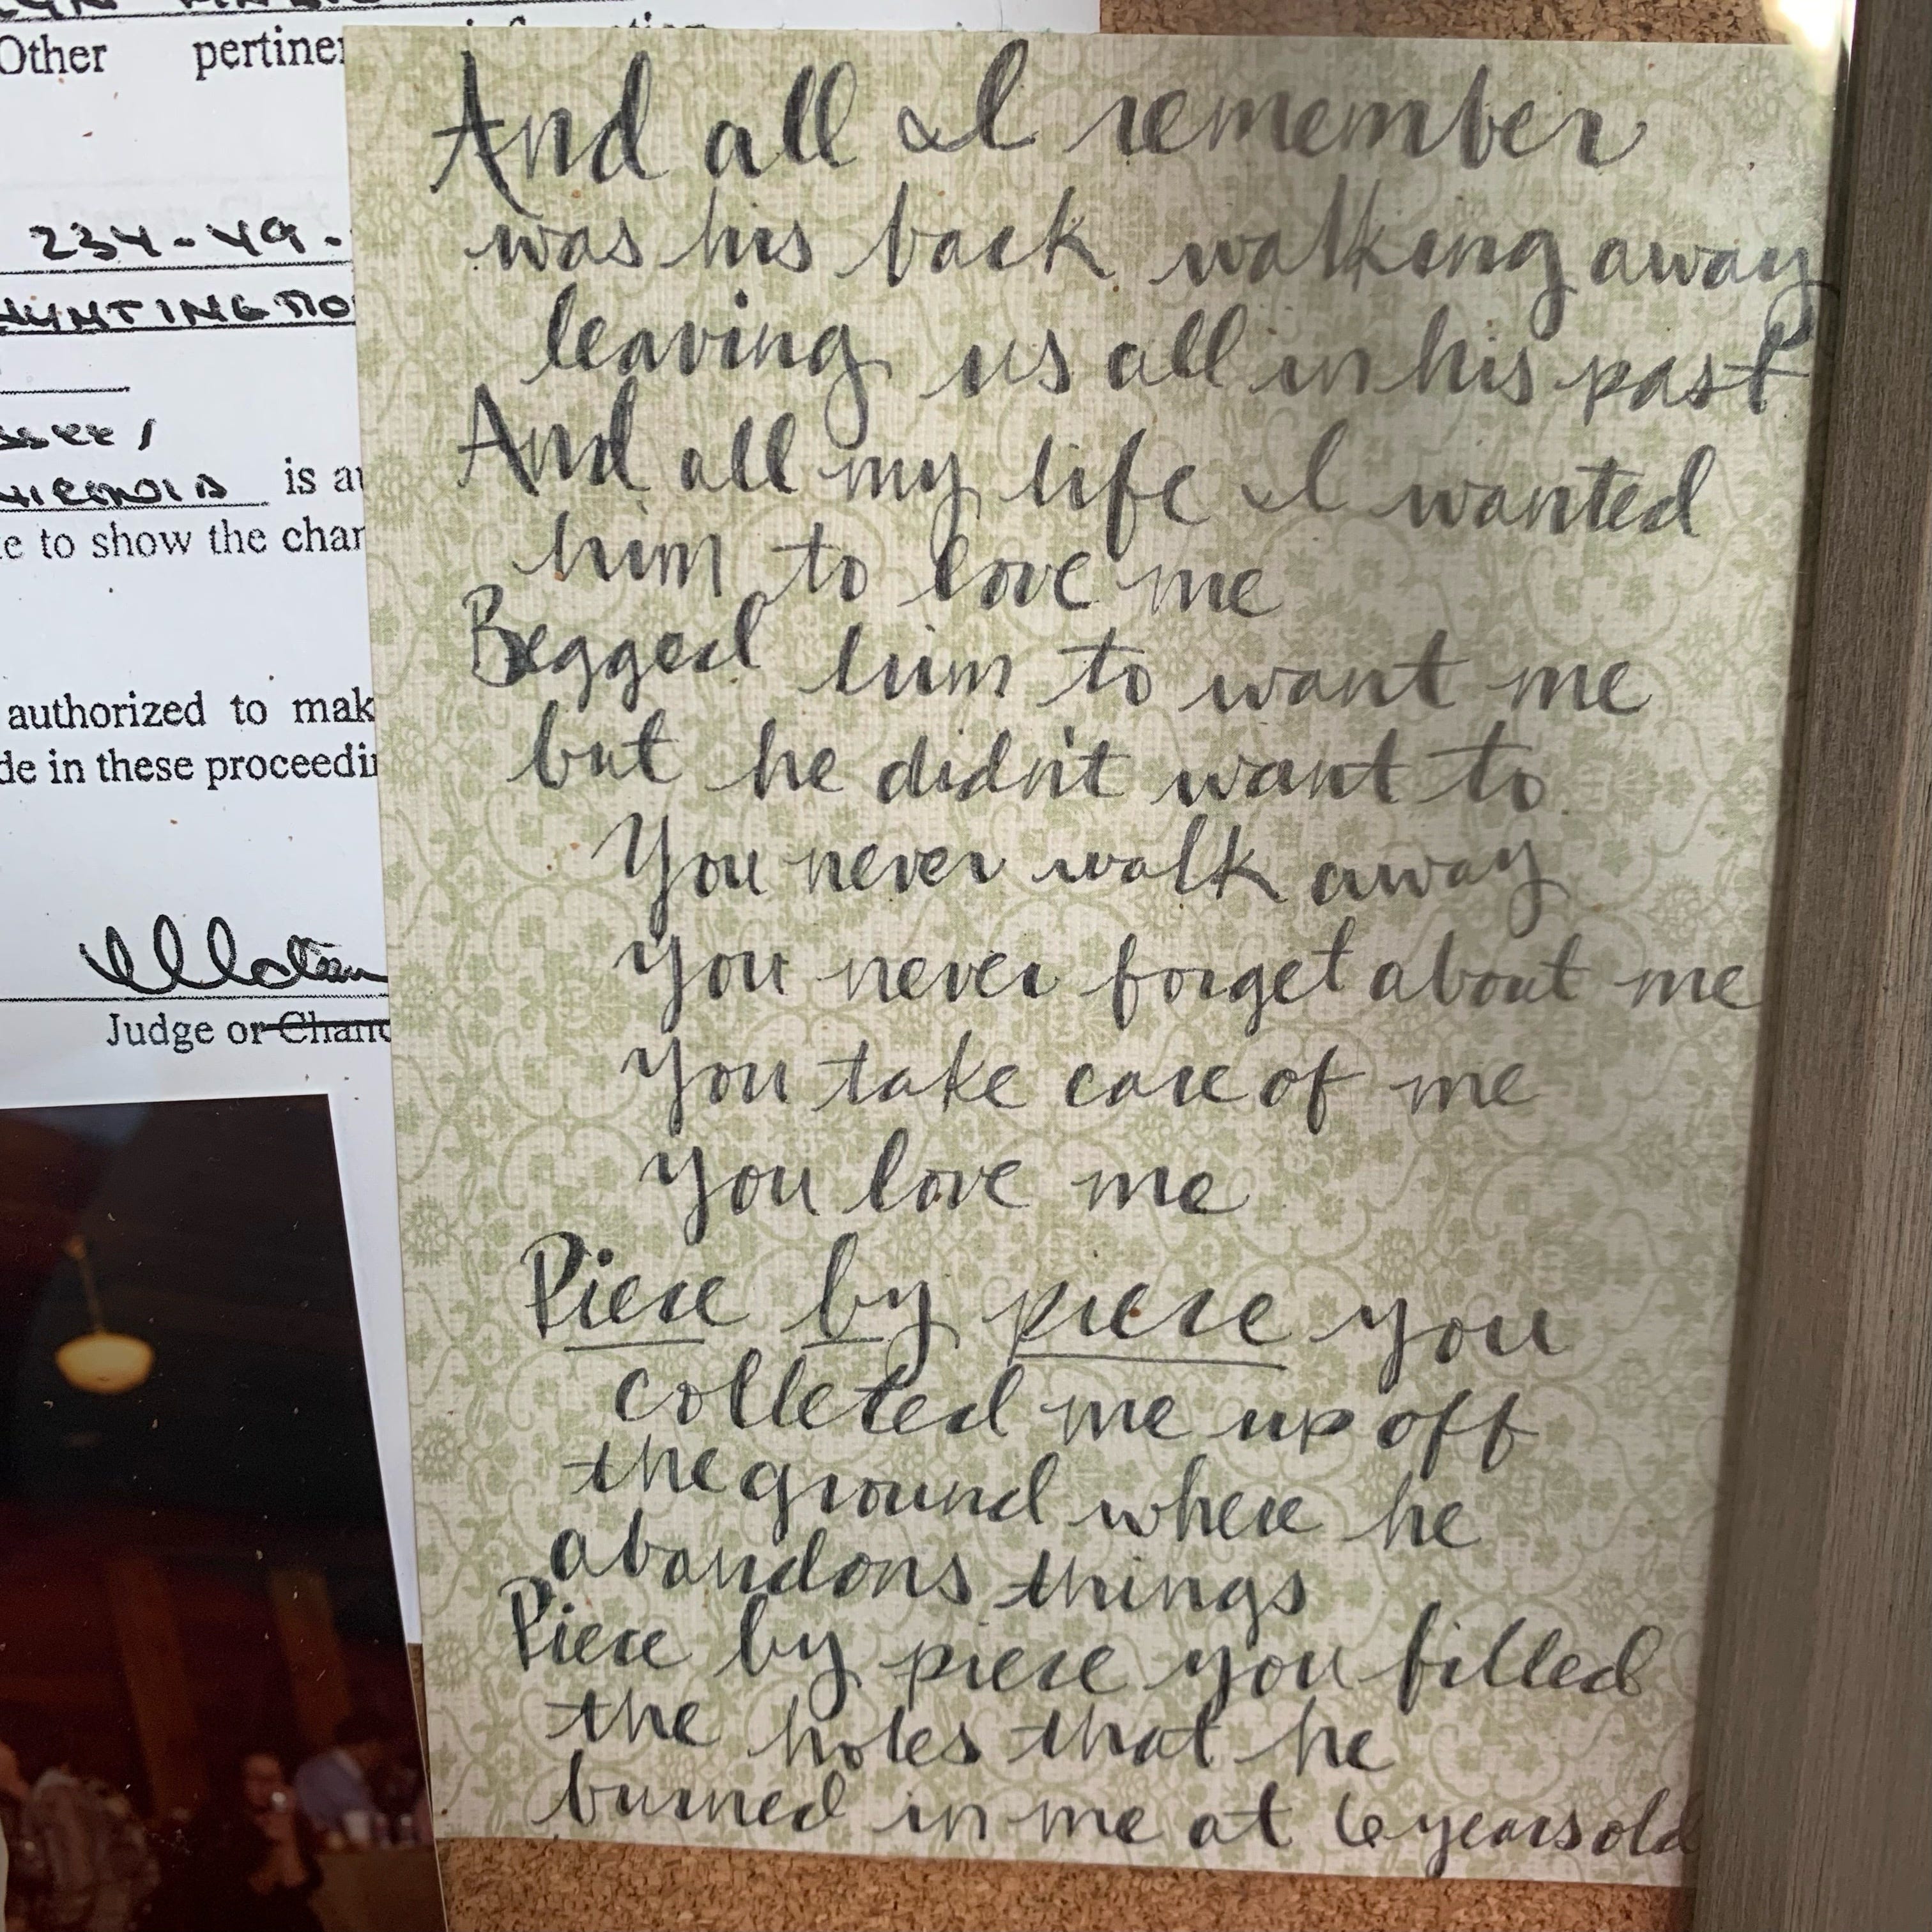 Other pertinent
234-49-
is au
e to show the char
authorized to mak
de in these proceedin
Judge or Chanc
And all I remember
was his back walking away
leaving us all in his past
And all my life I wanted
him to love me
Begged him to want me
but he didn't want to
You never walk away
You never forget about me
You take care of me
You love me
Piece by piece you
colleted me up off
the ground where he
abandons things
Piece by piece you filled
the holes that he
burned in me at 6 years old